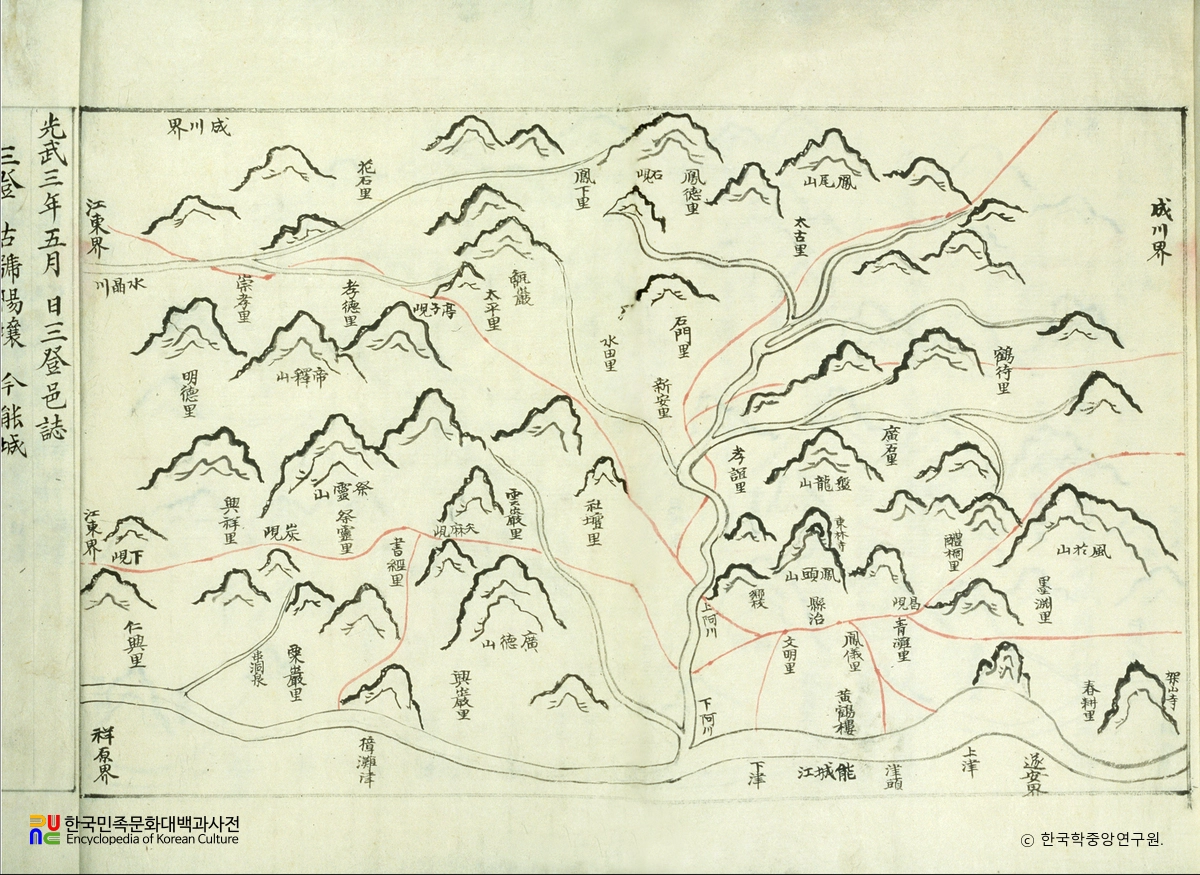 光武三年五月 日三登邑誌
三登 古號陽壤 今能城
成川界
成川界
江東界
水晶川
花石里
鳳下里
石峴
鳳德里
鳳尾山
太古里
崇孝里
孝德里
亭子峴
太平里
甑巖
水田里
石門里
新安里
鶴待里
明德里
帝釋山
祭靈山
祭靈里
興祥里
炭峴
書經里
矢麻峴
雲巖里
社壇里
孝誼里
廣石里
盤龍山
東林寺
鳳頭山
鄕校
縣治
醴桐里
風於山
墨淵里
昌峴
靑灘里
上阿川
文明里
鳳儀里
黃鶴樓
江東界
下峴
仁興里
栗巖里
廣德山
興巖里
下阿川
春耕里
架山寺
祥原界
樟灘津
下津
能城江
津頭
上津
遂安界
한국민족문화대백과사전
Encyclopedia of Korean Culture
ⓒ 한국학중앙연구원.